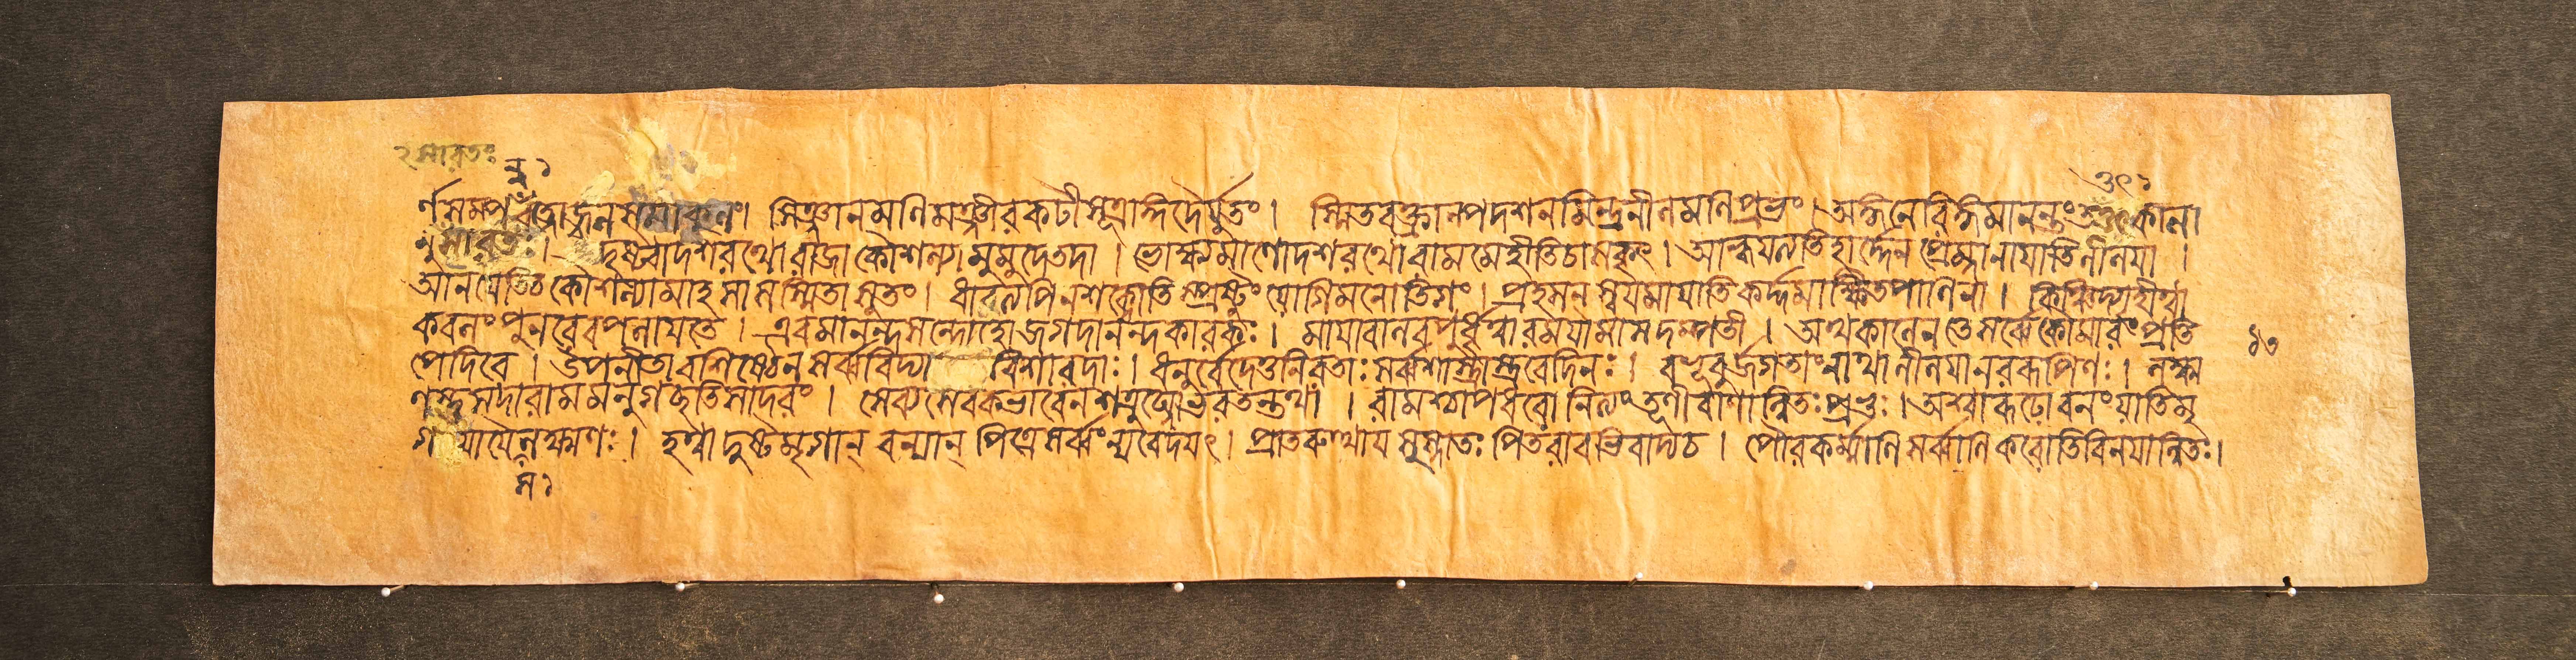 ২ সারতঃ ন্ন ১ ৩ৎ ১
র্ণসমপ্ররত্নার্জ্জুনসমাকুলং। সিঞ্জানমণিমঞ্জীরকটীসূত্রাঙ্গদৈর্যুতং। স্মিতবক্ত্রাল্পদশনমিন্দ্রনীলমণিপ্রভং। অঙ্গনেরিঙ্গমানন্তং তর্ণকানা
নুসারতঃ। দৃষ্ট্বাদশরথোরাজাকৌশল্যামুমুদেতদা। ভোক্ষ্যমাণোদশরথোরামমেহীতিচাসকৃৎ। আহ্বয়ত্যতিহার্দ্দেনপ্রেম্নানায়াতিলীলয়া।
আনয়েতিচকৌশল্যামাহসাসস্মিতাসুতং। ধাবত্যপিনশক্নোতিস্প্রষ্টুংযোগিমনোতিগং। প্রহসনস্বয়মায়াতিকর্দ্দমাঙ্কিতপাণিনা। কিঞ্চিদ্গৃহীত্বা
কবলংপুনরেবপলায়তে। এবমানন্দসন্দোহোজগদানন্দকারকঃ। মায়াবালবপুর্ধৃত্বারময়ামাসদম্পতী। অথকালেনতেসর্ব্বেকৌমারংপ্রতি ১৩
পেদিরে। উপনীতাবশিষ্ঠেনসর্ব্ববিদ্যা বিশারদাঃ। ধনুর্বেদেতুনিরতাঃসর্ব্বশাস্ত্রাস্ত্রবেদিনঃ। বভূবুর্জগতাংনাথালীলয়ানররূপিণঃ। লক্ষ্ম
ণস্তুসদারামমনুগচ্ছতিসাদরং। সেব্যসেবকভাবেনশত্রুঘ্নোভরতন্তথা। রামশ্চাপধরোনিত্যংতূণীবাণান্বিতঃপ্রভুঃ। অশ্বারূঢোবনংযাতিমৃ
গ যায়ৈলক্ষ্মণঃ। হত্বাদুষ্টমৃগান্ বন্যান্ পিত্রেসর্ব্বংন্যবেদয়ৎ। প্রাতরুত্থায়সুস্নাতঃপিতরাবভিবাদ্যচ। পৌরকর্ম্মাণিসর্ব্বাণিকরোতিবিনয়ান্বিতঃ।
স ১